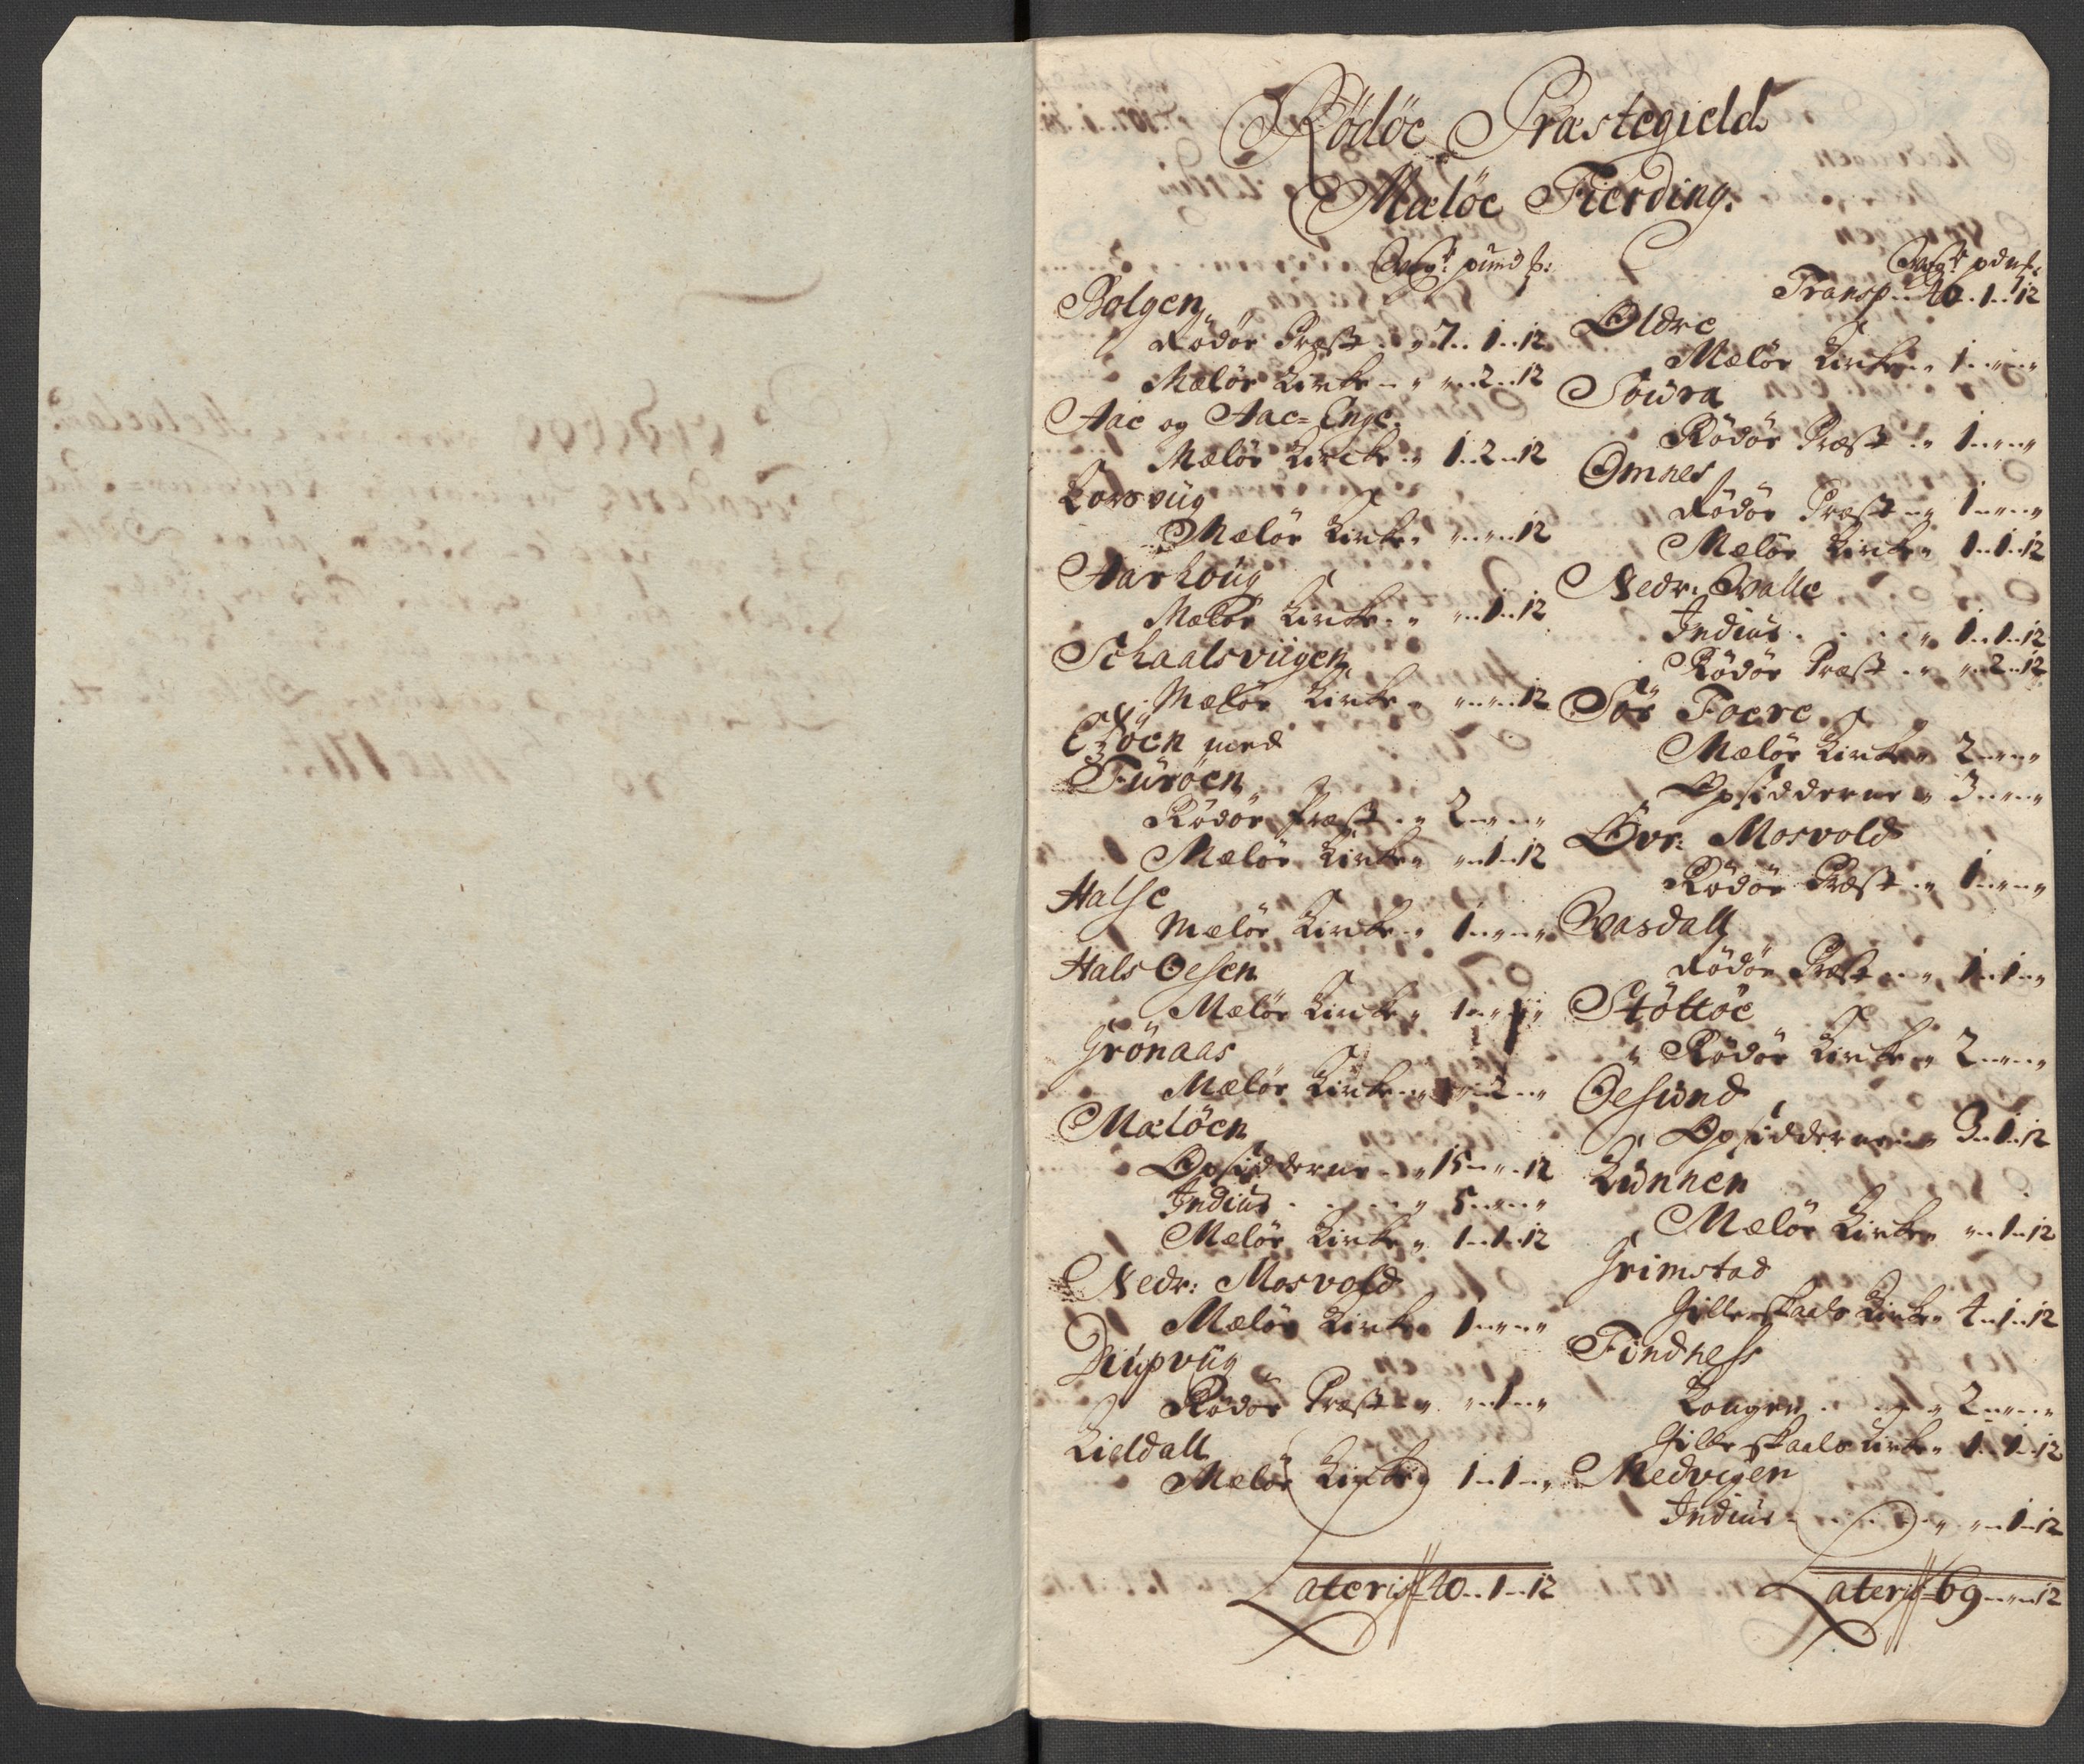 Rödöe Præstegield
Mæløe Fierding.
Wogr pund ß:
Bolgen
Rödöe Præst .. " 7.. 1..12
Melöe Kircke .. " "..2..12
Aae og Aae=Enge.
Melöe Kircke .. 1..2..12
Korsvüg
Melöe Kircke " "..."..12
Aarhoüg
Melöe Kircke .. " "..1..12
Schaalsviigen
Melöe Kircke " "..."..12
med
Furöen
Rödöe Præst .. " 2..."..."
Melöe Kircke " "..1..12
Halse
Melöe Kircke .. " 1..."..."
Hals Oesen
Melöe Kircke " 1..."..."
Grönaas
Melöe Kircke .. " "..2..."
Mælöen
Opsidderne .. " 15..."..12
Indius . . . " 5..."..."
Melöe Kircke " 1..1..12
Nedr: Mosvold
Melöe Kircke 1..."..."
Diupvüg
Rödöe Præst .. " "..1..."
Kieldall
Melöe Kircke 1..1..."
Lateris 40..1..12
Wogr pdn ß:
Transp.. 40..1..12
Oldre
Melöe Kircke .. " 1..."..."
Soura
Rödöe Præst .. " 1..."..."
Omnes
Rödöe Præst .. " 1..."..."
Melöe Kircke " 1..1..12
Nedr: Walle
Indius . . . . " 1..1..12
Rödöe Præst .. " "..2..12
Sör Foere
Melöe Kircke " 2..."..."
Opsidderne " 3..."..."
Öwr: Mosvold
Rödöe Præst .. " 1..."..."
Wasdall
Rödöe Præst .. " 1..1..."
Stöttöe
Rödöe Kircke " 2..."..."
Oesund
Opsidderne .. " 3..1..12
Kunnen
Melöe Kircke " "..1..12
Grimstad
Gilleskaals Kircke " 4..1..12
Findness
Kongen . . . " 2..."..."
Gilleskaals Kircke " 1..1..12
Medvigen
Indius . . . . " "..1..12
Lateris 69..."..12